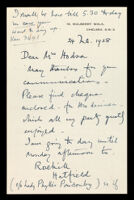 I shall be here till 5.30 today
in case you
want to ring up.
19 MULBERRY WALK,
CHELSEA, S.W.3.
24 Feb. 1928
Dear Mr Hodson
Many thanks for your
communication.
Please find cheque
enclosed for the
which all my party greatly
enjoyed.
I am going to day until
Monday afternoon to
Hatfield
c/o Lady
is if